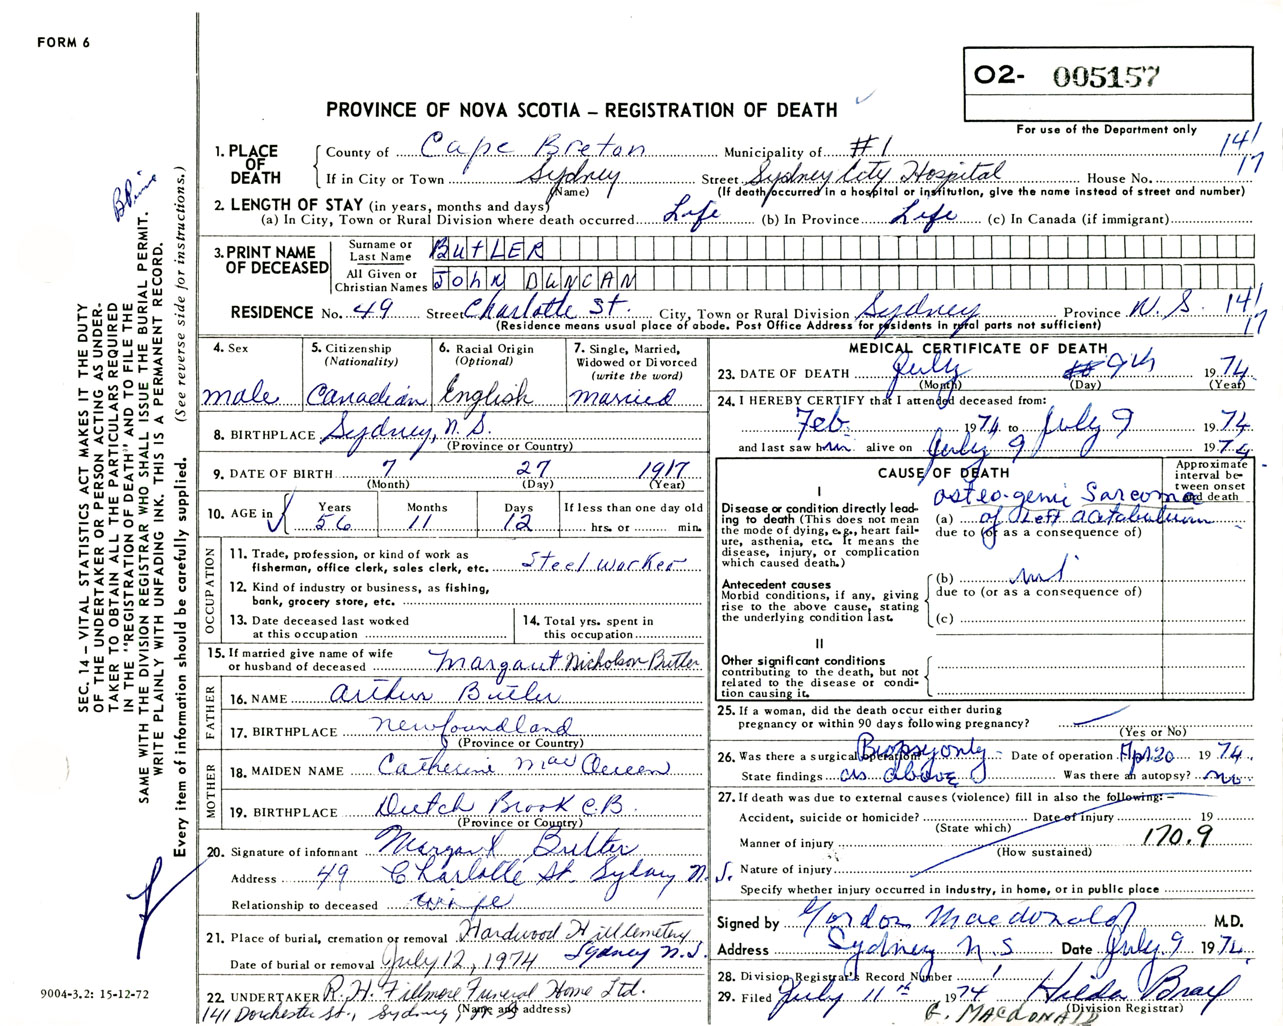 FORM 6
O2- 005157
PROVINCE OF NOVA SCOTIA – REGISTRATION OF DEATH
For use of the Department only
1. PLACE OF DEATH
County of Cape Breton Municipality of #1 141
If in City or Town Sydney Street Sydney City Hospital House No. 17
(Name) (If death occurred in a hospital or institution, give the name instead of street and number)
2. LENGTH OF STAY (in years, months and days)
(a) In City, Town or Rural Division where death occurred Life (b) In Province Life (c) In Canada (if immigrant)
3. PRINT NAME OF DECEASED
Surname or Last Name BUTLER
All Given or Christian Names JOHN DUNCAN
RESIDENCE No. 49 Street Charlotte St. City, Town or Rural Division Sydney Province N.S. 141
(Residence means usual place of abode. Post Office Address for residents in rural parts not sufficient) 17
4. Sex
male
5. Citizenship
(Nationality)
Canadian
6. Racial Origin
(Optional)
English
7. Single, Married, Widowed or Divorced
(write the word)
married
8. BIRTHPLACE Sydney, N.S.
(Province or Country)
9. DATE OF BIRTH 7 27 1917
(Month) (Day) (Year)
10. AGE in Years Months Days If less than one day old
56 11 12 hrs. or min.
OCCUPATION
11. Trade, profession, or kind of work as
fisherman, office clerk, sales clerk, etc. Steel worker
12. Kind of industry or business, as fishing,
bank, grocery store, etc.
13. Date deceased last worked
at this occupation
14. Total yrs. spent in
this occupation
15. If married give name of wife
or husband of deceased Margaret Nicholson Butler
FATHER
16. NAME Arthur Butler
17. BIRTHPLACE Newfoundland
(Province or Country)
MOTHER
18. MAIDEN NAME Catherine MacQueen
19. BIRTHPLACE Dutch Brook C.B.
(Province or Country)
20. Signature of informant Margaret Butler
Address 49 Charlotte St. Sydney N.S.
Relationship to deceased wife
21. Place of burial, cremation or removal Hardwood Hill Cemetery
Date of burial or removal July 12, 1974 Sydney N.S.
22. UNDERTAKER R.H. Fillmore Funeral Home Ltd.
(Name and address)
141 Dorchester St., Sydney, N.S.
MEDICAL CERTIFICATE OF DEATH
23. DATE OF DEATH July 9th 1974
(Month) (Day) (Year)
24. I HEREBY CERTIFY that I attended deceased from:
Feb 1974 to July 9 1974
and last saw him alive on July 9 1974
CAUSE OF DEATH
Approximate interval between onset and death
I
Disease or condition directly leading to death (This does not mean the mode of dying, e.g., heart failure, asthenia, etc. It means the disease, injury, or complication which caused death.)
osteogenic Sarcoma
(a) of Left acetabulum
due to (or as a consequence of)
Antecedent causes
Morbid conditions, if any, giving rise to the above cause, stating the underlying condition last.
(b)
due to (or as a consequence of)
(c)
II
Other significant conditions
contributing to the death, but not related to the disease or condition causing it.
25. If a woman, did the death occur either during
pregnancy or within 90 days following pregnancy?
(Yes or No)
26. Was there a surgical operation? Biopsy only Date of operation Apr 20 1974
State findings as above Was there an autopsy? no
27. If death was due to external causes (violence) fill in also the following: –
Accident, suicide or homicide? Date of injury 19
(State which)
Manner of injury 170.9
(How sustained)
Nature of injury
Specify whether injury occurred in industry, in home, or in public place
Signed by Gordon Macdonald M.D.
Address Sydney N.S. Date July 9 1974
28. Division Registrar's Record Number 1
29. Filed July 11th 1974 Hilda Bray
(Division Registrar)
G. MACDONALD
SEC. 14 – VITAL STATISTICS ACT MAKES IT THE DUTY
OF THE UNDERTAKER OR PERSON ACTING AS UNDER-
TAKER TO OBTAIN ALL THE PARTICULARS REQUIRED
IN THE "REGISTRATION OF DEATH" AND TO FILE THE
SAME WITH THE DIVISION REGISTRAR WHO SHALL ISSUE THE BURIAL PERMIT.
WRITE PLAINLY WITH UNFADING INK. THIS IS A PERMANENT RECORD.
Every item of information should be carefully supplied. (See reverse side for instructions.)
9004-3.2: 15-12-72